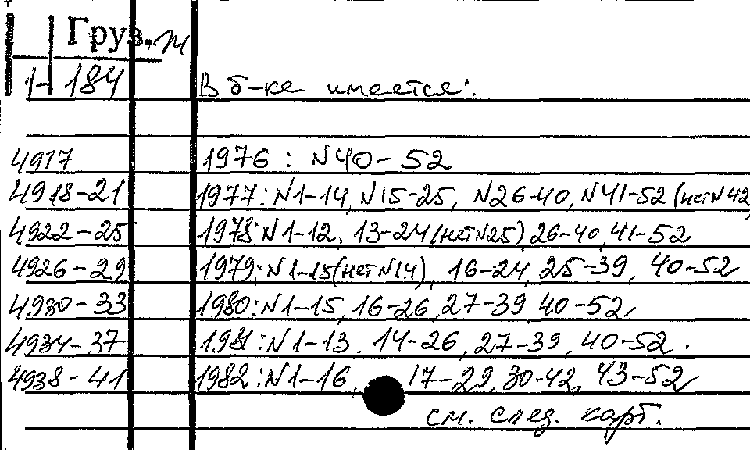 Груз. М
1-184 В б-ке имеется:
4917 1976: N40-52
4918-21 1977: N1-14, N15-25, N26-40, N41-52 (нет N42
4922-25 1978: N1-12, 13-24 (нет N25), 26-40, 41-52
4926-29 1979: N1-15 (нет N14), 16-24, 25-39, 40-52
4930-33 1980: N1-15, 16-26, 27-39, 40-52,
4934-37 1981: N1-13, 14-26, 27-39, 40-52.
4938-41 1982: N1-16, 17-29, 30-42, 43-52,
см. след. карт.